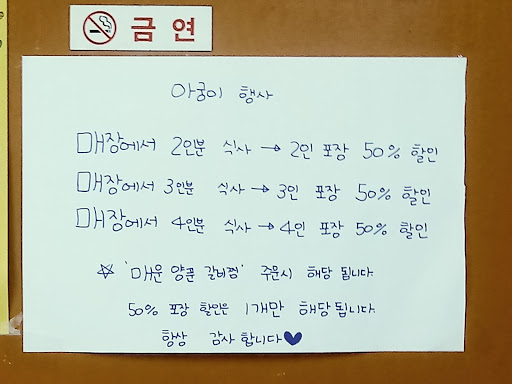 금연
아궁이 행사
매장에서 2인분 식사 → 2인 포장 50% 할인
매장에서 3인분 식사 → 3인 포장 50% 할인
매장에서 4인분 식사 → 4인 포장 50% 할인
☆ '매운 양푼 갈비찜' 주문시 해당 됩니다
50% 포장 할인은 1개만 해당 됩니다.
항상 감사 합니다♥